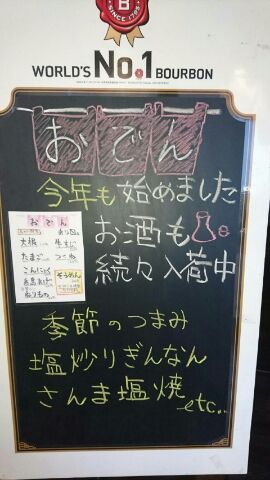 B
SINCE 1795
WORLD'S No.1 BOURBON
おでん
今年も始めました
お酒も
続々入荷中
おでん
大根
牛すじ
たまご
つくね
こんにゃく
そうめん
季節のつまみ
塩炒りぎんなん
さんま塩焼
etc...